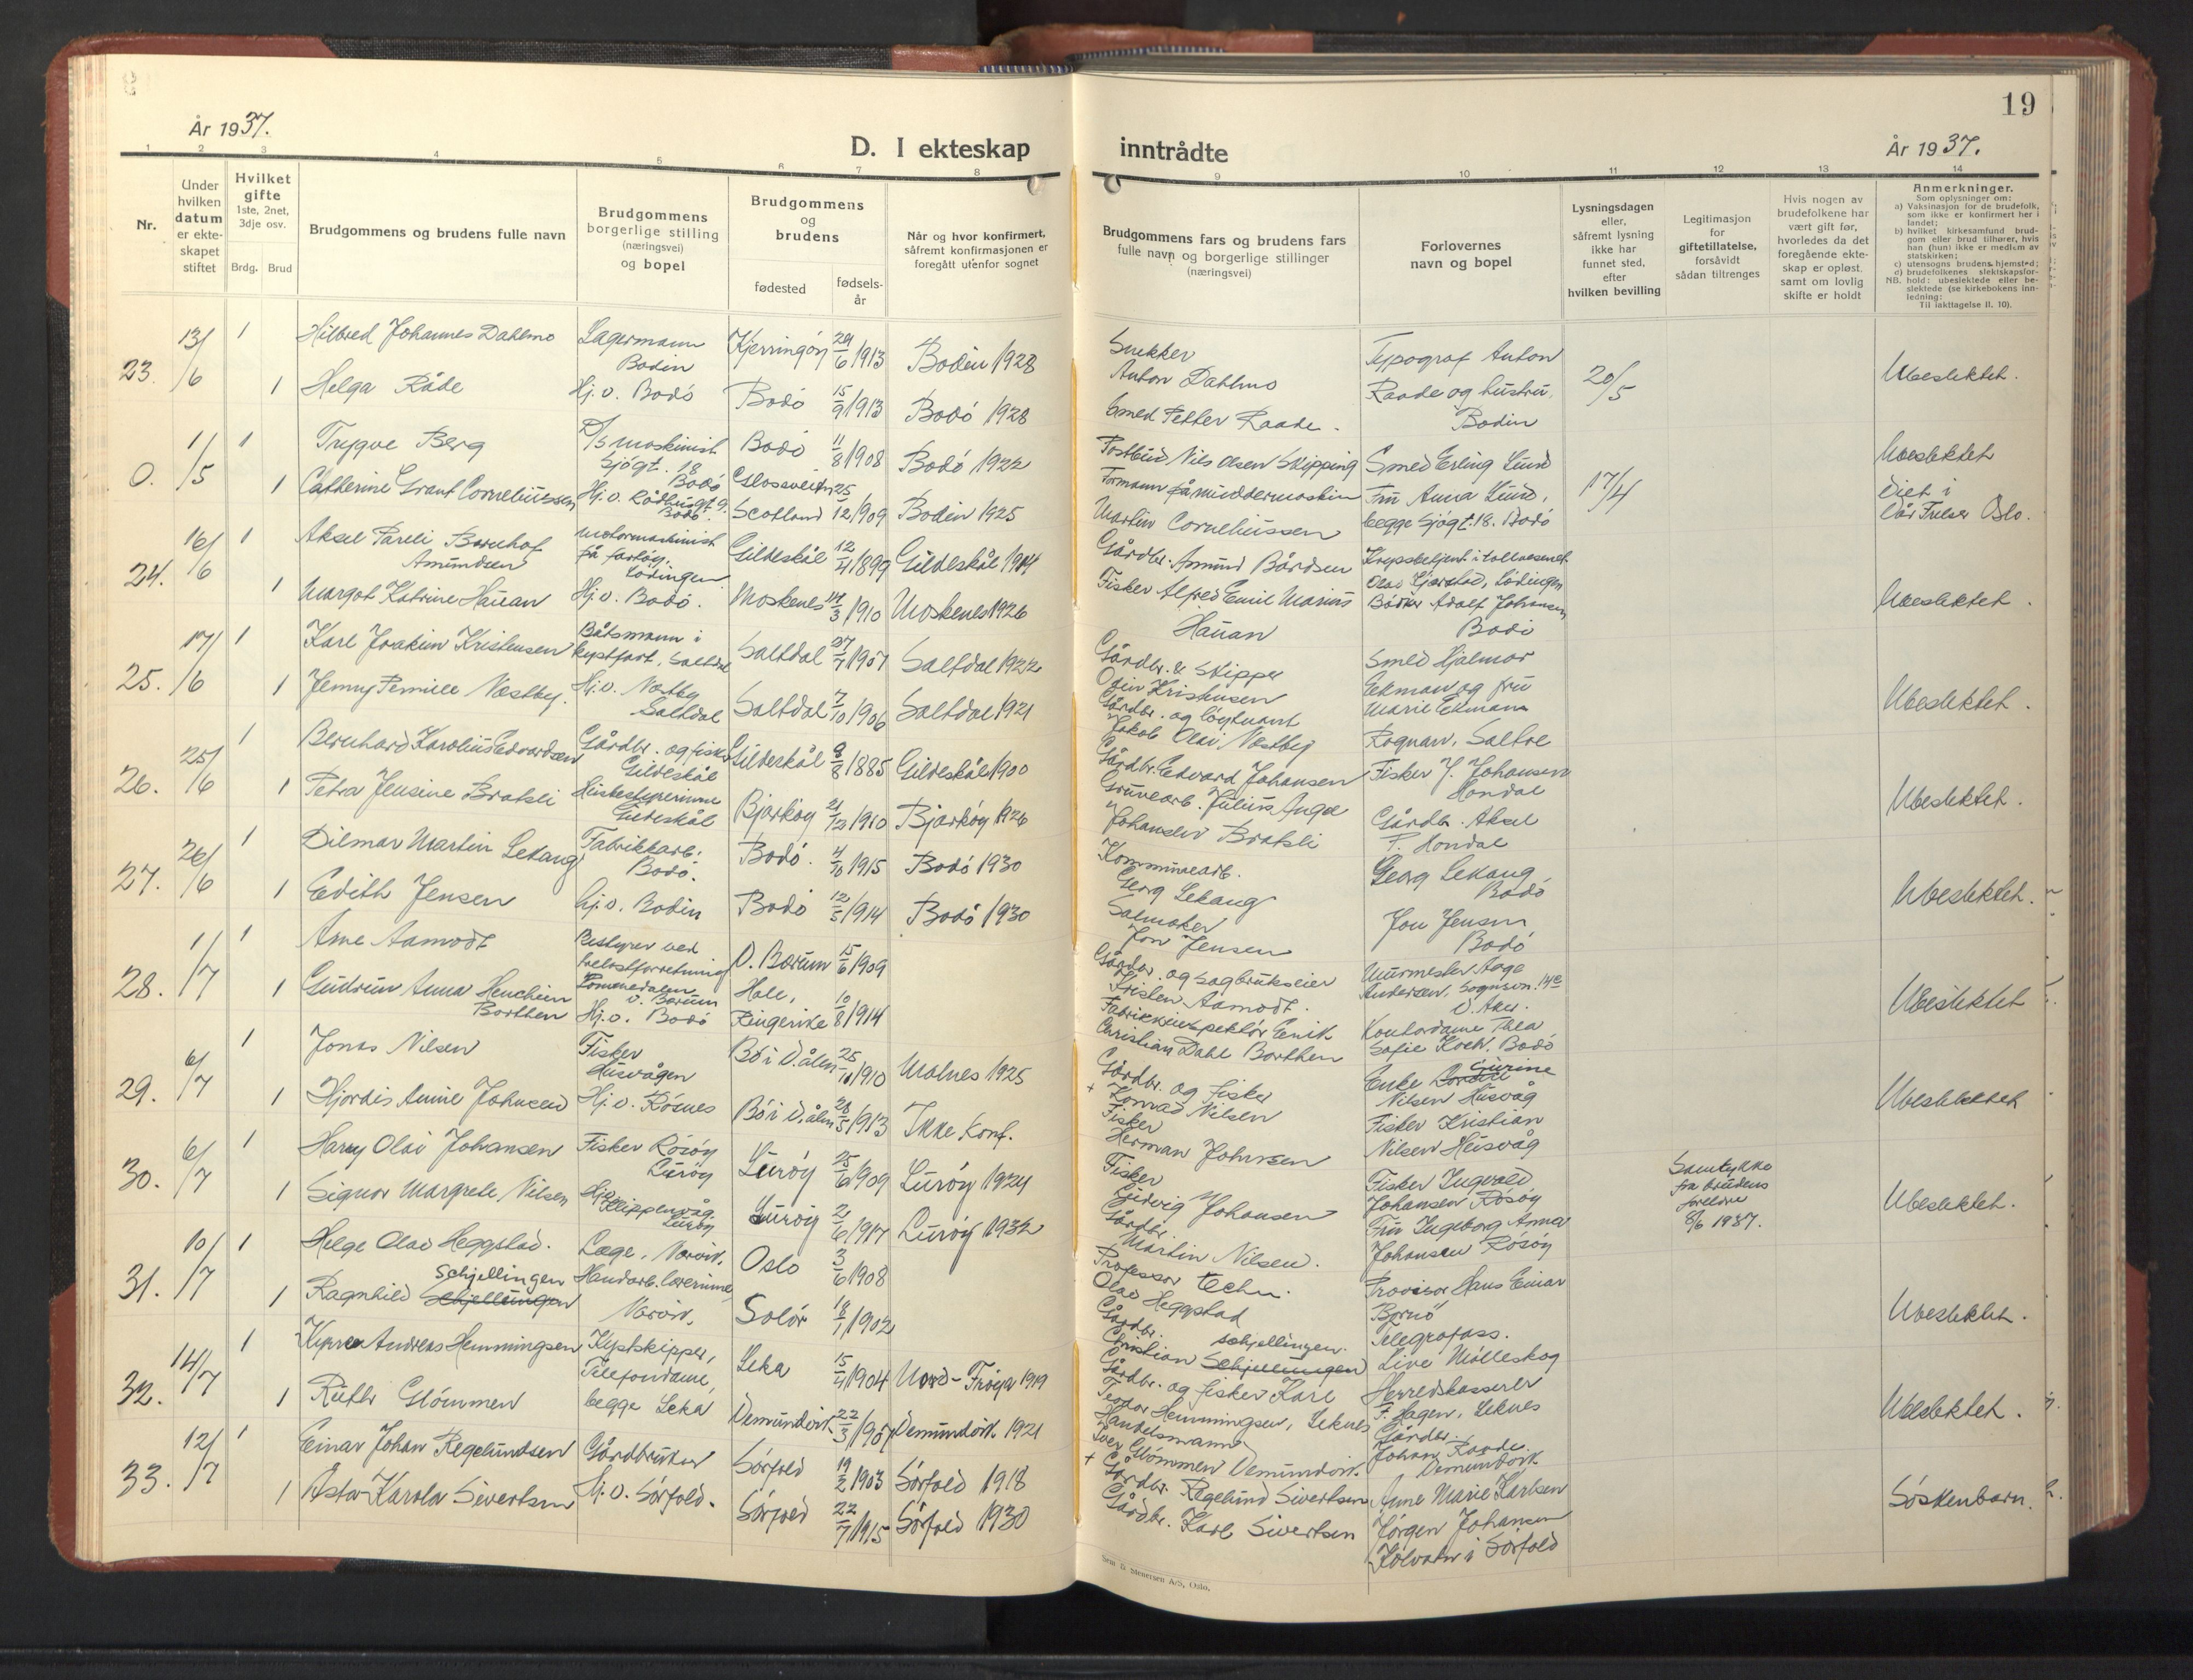 År 1937.
D. I ekteskap inntrådte
År 1937.
19
1 2 3 4 5 6 7 8 9 10 11 12 13 14
Nr.
Under hvilken datum er ekteskapet stiftet
Hvilket gifte 1ste, 2net, 3dje osv.
Brdg. Brud
Brudgommens og brudens fulle navn
Brudgommens borgerlige stilling (næringsvei) og bopel
Brudgommens og brudens
fødested
fødsels-år
Når og hvor konfirmert, såfremt konfirmasjonen er foregått utenfor sognet
Brudgommens fars og brudens fars fulle navn og borgerlige stillinger (næringsvei)
Forlovernes navn og bopel
Lysningsdagen eller, såfremt lysning ikke har funnet sted, efter hvilken bevilling
Legitimasjon for giftetillatelse, forsåvidt sådan tiltrenges
Hvis nogen av brudefolkene har vært gift før, hvorledes da det foregående ekteskap er opløst samt om lovlig skifte er holdt
Anmerkninger.
Som oplysninger om:
a) Vaksinasjon for de brudefolk, som ikke er konfirmert her i landet;
b) hvilket kirkesamfund brudgom eller brud tilhører, hvis han (hun) ikke er medlem av statskirken;
c) utensogns brudens hjemsted;
d) brudefolkenes slektskapsforhold: ubeslektede eller beslektede (se kirkebokens innledning:
NB. Til iakttagelse II. 10).
23. 13/6 1 Hilbred Johannes Dahlmo Lagermann Bodin Kjerringøy 29/6 1913 Bodin 1928 Snekker Anton Dahlmo Typograf Anton Raade og hustru. Bodin 20/5 Ubeslektet.
1 Helga Råde Hj.d. Bodø Bodø 15/9 1913 Bodø 1928 Smed Petter Raade.
0. 1/5 1 Trygve Berg D/S maskinist Sjøgt. 18 Bodø Bodø 11/8 1908 Bodø 1922 Postbud Nils Olsen Skipping Smed Erling Lund Fru Anna Lund, begge Sjøgt. 18. Bodø 17/4 Ubeslektet Viet i Vår Frelser Oslo.
1 Catherine Grant Corneliussen Hj.d. Rådhusgt 9. Bodø. Scotland 25/12 1909 Bodin 1925 Formann på muddermaskin Martin Corneliussen
24. 16/6 1 Aksel Pareli Bernhof Amundsen motormaskinist på fartøy, Lødingen Gildeskål 12/4 1899 Gildeskål 1914 Gårdbr. Amund Bårdsen Krypsbetjent i tollvesenet Olav Lødingen Ubeslektet.
1 Margot Katrine Hauan Hj.d. Bodø. Moskenes 14/3 1910 Moskenes 1926 Fisker Alfred Emil Marius Hauan Bødker Adolf Johansen Bodø
25. 17/6 1 Karl Joakim Kristensen Båtsmann i kystfart, Saltdal Saltdal 27/7 1907 Saltdal 1922 Gårdbr. & skipper Odin Kristensen Smed Hjalmar Ekman og fru Marie Ekmann Rognan, Saltdal Ubeslektet.
1 Jenny Pernille Næstby. Hj.d. Næstby Saltdal Saltdal 7/10 1906 Saltdal 1921 Gårdbr. og løytnant Jakob Olai Næstby
26. 25/6 1 Bernhard Karolius Edvardsen Gårdbr. og fisker Gildeskål Gildeskål 9/8 1885 Gildeskål 1900 Gårdbr. Edvard Johansen Fisker J. Johansen Mondal Ubeslektet.
1 Petra Jensine Bratsli Husbestyrerinne Gildeskål Bjarkøy 21/12 1910 Bjarkøy 1926 Gruvearb. Julius Angel Johansen Bratsli Gårdbr. Aksel P. Mondal
27. 26/6 1 Dilmar Martin Lekang Fabrikkarb. Bodø. Bodø. 4/10 1915 Bodø 1930 Kommunearb. Georg Lekang Georg Lekang Bodø Ubeslektet.
1 Edith Jensen hj.d. Bodin Bodø 12/5 1914 Bodø 1930 Salmaker Jon Jensen Jon Jensen Bodø
28. 1/7 1 Arne Aamodt Bestyrer ved Lomenedalen V. Bærum V. Bærum 15/6 1909 Gårdbr. og sagbrukseier Kristen Aamodt. Murmester Aage Andersen, Sognsvn. 14e V. Aker. Ubeslektet
1 Gudrun Anna Henchien Borthen Hj.d. Bodø Hole, Ringerike 10/8 1914 Fabrikkinspektør Henrik Christian Dahl Borthen Kontordame Thea Sofie Koch. Bodø
29. 6/7 1 Jonas Nilsen Fisker Husvågen Bø i V.ålen 25/10 1910 Malnes 1925 Gårdbr. og fisker Konrad Nilsen Enke Gurine Nilsen Husvåg Ubeslektet
1 Hjørdis Annie Johnsen Hj.d. Røsnes Bø i V.ålen 28/5 1913 Ikke konf. + Fisker Herman Johnsen Fisker Kristian Nilsen Husvåg
30. 6/7 1 Harry Olai Johansen Fisker Rosøy Lurøy Lurøy 25/6 1909 Lurøy 1924 Fisker Ludvig Johansen Fisker Ingvald Johansen Rosøy Samtykke fra brudens foreldre 8/6 1937. Ubeslektet.
1 Signor Margrete Nilsen Hj.d. Klippenvåg Lurøy Lurøy 2/6 1917 Lurøy 1932 Gårdbr. Martin Nilsen. Fru Ingeborg Anna Johansen Rosøy
31. 10/7 1 Helge Olav Heggstad. Læge, Narvik. Oslo 3/6 1908 Professor techn. Olav Heggstad Provisor Hans Einar Bjernø Ubeslektet.
1 Ragnhild Schjellingen Håndarb. lærerinne, Narvik. Solør 18/1 1902 Gårdbr. Christian Schjellingen Telegrafass. Live Mølleskog
32. 14/7 1 Kyrre Andreas Hemmingsen Kystskipper, Leka 15/4 1904 Nord-Frøya 1919 Gårdbr. og fisker Karl Teodor Hemmingsen, Leknes Herredskasserer F. Hagen, Leknes Ubeslektet.
1 Ruth Glømmen Telefondame, begge Leka Vemundvik 22/3 1907 Vemundvik. 1921 Handelsmann Iver Glømmen Vemundvik. Gårdbr. Johan Raade. Vemundvik
33. 12/7 1 Einar Johan Regelundsen Gårdbruker Sørfold 19/2 1903 Sørfold 1918 + Gårdbr. Regelund Sivertsen Anne Marie Karlsen Søskenbarn.
1 Asta Karola Sivertsen Hj.d. Sørfold. Sørfold 22/7 1915 Sørfold 1930 Gårdbr. Karl Sivertsen Jørgen Johansen i Sørfold
Sem & Stenersen A/S, Oslo.